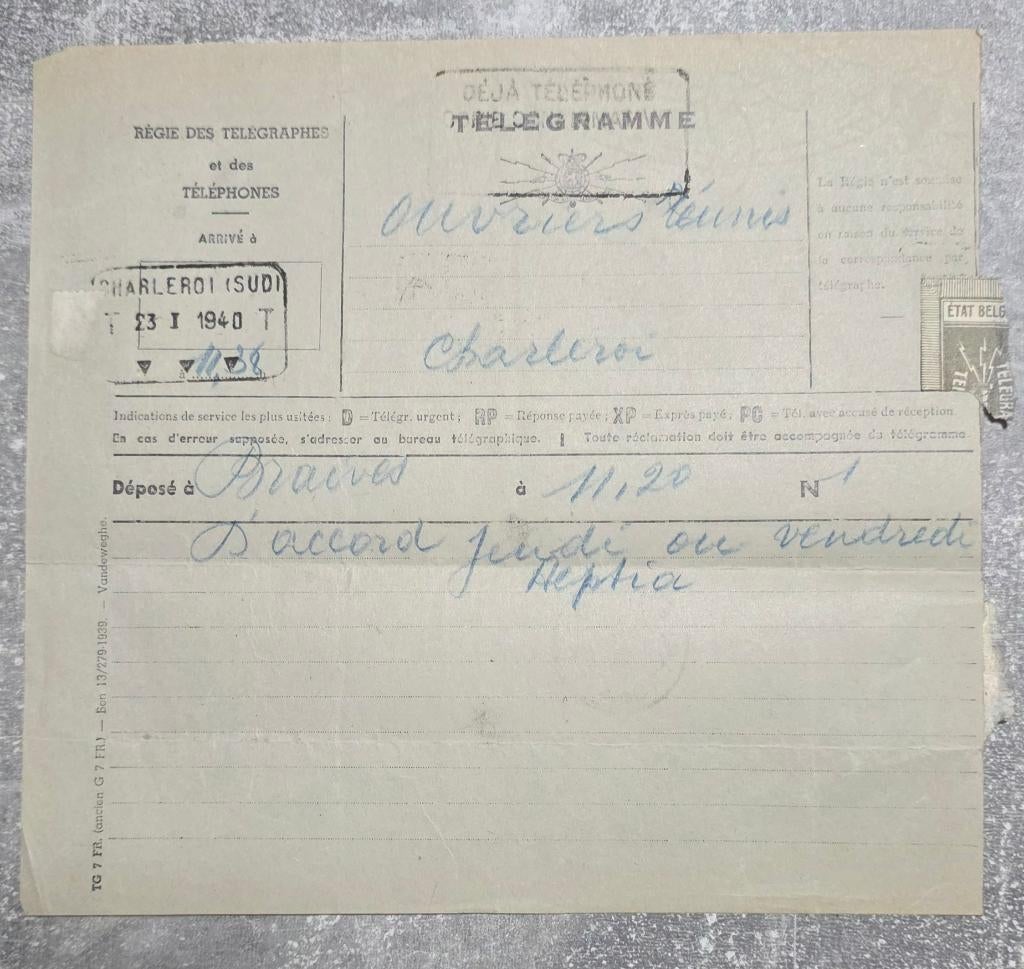 DÉJÀ TÉLÉPHONÉ
TÉLÉGRAMME
RÉGIE DES TÉLÉGRAPHES
et des
TÉLÉPHONES
ARRIVÉ à
CHARLEROI (SUD)
T 23 I 1940 T
11,38
Ouvriers Réunis
Charleroi
La Régie n'est soumise
à aucune responsabilité
en raison du service de
la correspondance par
télégraphe.
ÉTAT BELG
Indications de service les plus usitées : D = Télégr. urgent ; RP = Réponse payée ; XP = Exprès payé ; PC = Tél. avec accusé de réception.
En cas d'erreur supposée, s'adresser au bureau télégraphique. | Toute réclamation doit être accompagnée du télégramme.
Déposé à Braives à 11,20 N 1
D'accord jeudi ou vendredi
Heptia
TG 7 FR. (ancien G 7 FR.) — Bon 13/279-1939. — Vandeweghe.